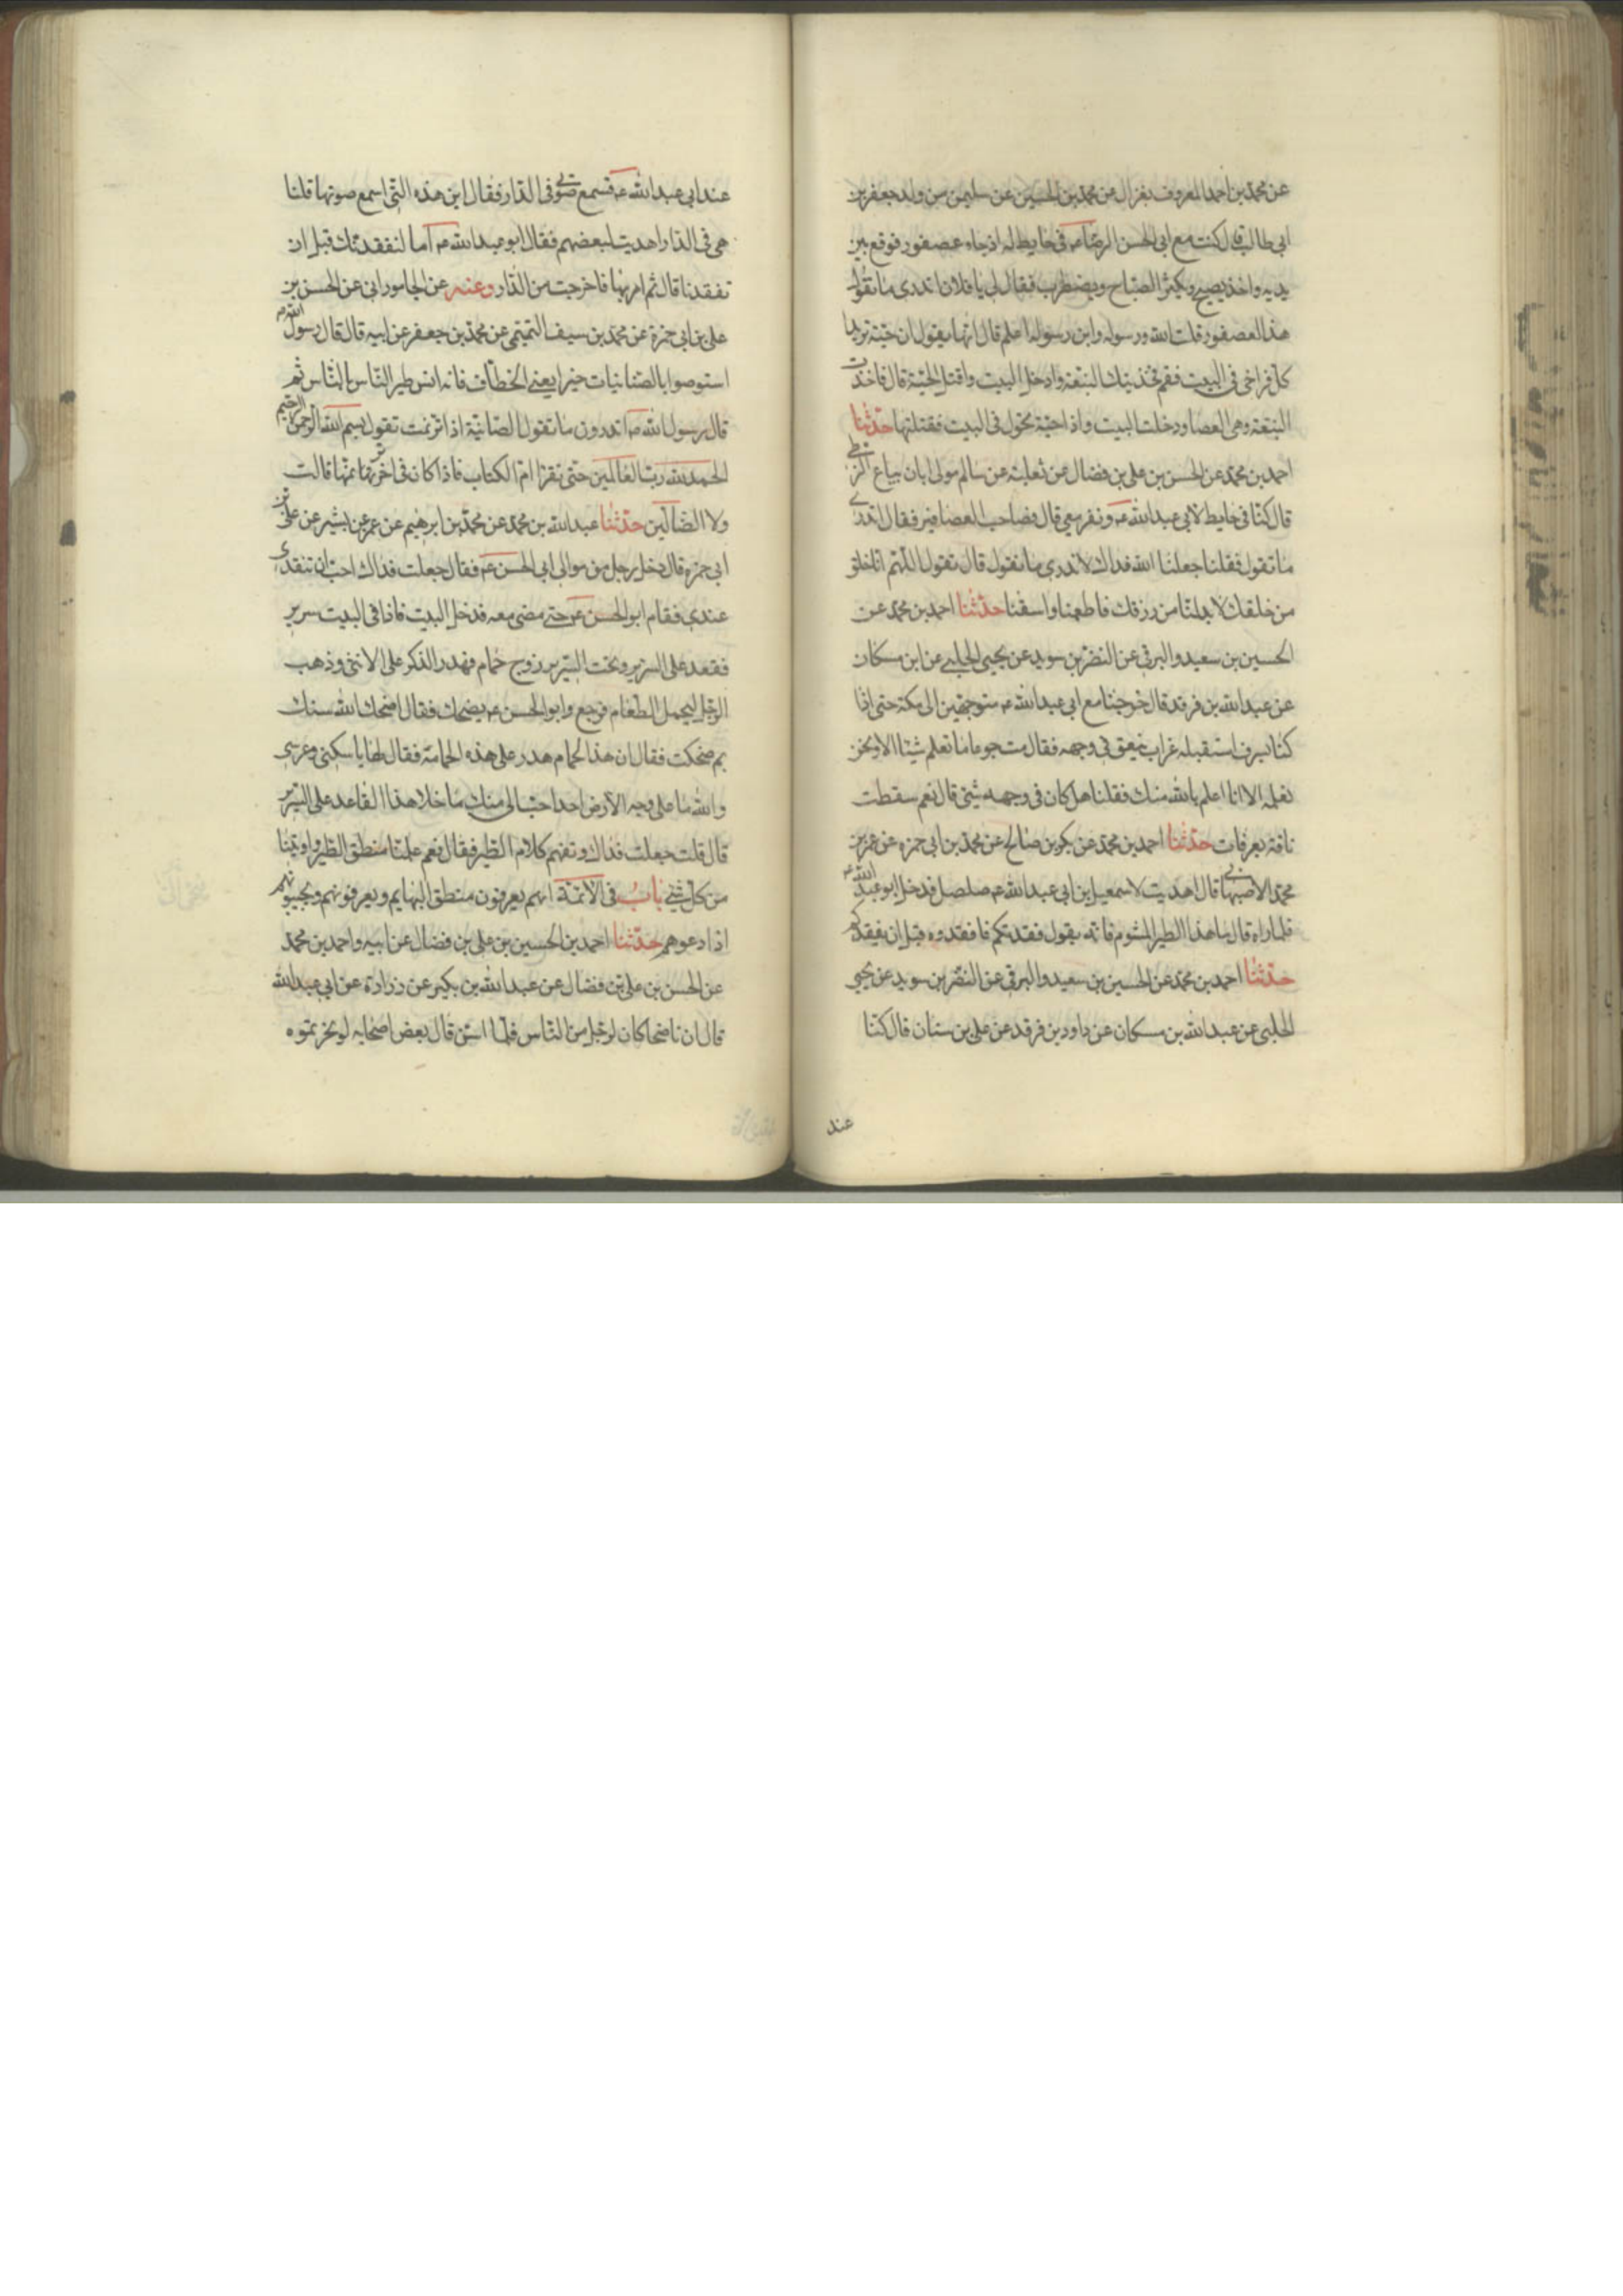 عن محمد بن احمد المعروف بغزال عن محمد بن الحسين عن سليمن من ولد جعفر بن
ابي طالب قال كنت مع ابي الحسن الرضا عه في حايط له اذ جاء عصفور فوقع بين
يديه واخذ يصيح ويكثر الصياح ويضطرب فقال لي يا فلان اتدري ما تقول
هذا العصفور قلت الله ورسوله وابن رسوله اعلم قال انها يقول ان حية تريد
اكل فراخي في البيت فقم فخذ تيك النبعة وادخل البيت واقتل الحية قال فاخذت
النبعة وهي العصا ودخلت البيت واذا حية تجول في البيت فقتلتها حدثنا
احمد بن محمد عن الحسن بن علي بن فضال عن ثعلبة عن سالم مولى ابان بياع الزطي
قال كنا في حايط لابي عبد الله عه ونفر معي قال فصاحب العصافير فقال اتدري
ما تقول فقلنا جعلنا الله فداك لا ندري ما تقول قال تقول اللهم انا خلق
من خلقك لا بد لنا من رزقك فاطعمنا واسقنا حدثنا احمد بن محمد عن
الحسين بن سعيد والبرقي عن النضر بن سويد عن يحيى الحلبي عن ابن مسكان
عن عبد الله بن فرقد قال خرجنا مع ابي عبد الله عه متوجهين الى مكة حتى اذا
كنا بسرف استقبله غراب ينعق في وجهه فقال مت جوعا ما تعلم شيئا الا ونحن
نعلمه الا انا اعلم بالله منك فقلنا هل كان في وجهه شئ قال نعم سقطت
ناقة بعرفات حدثنا احمد بن محمد عن بكر بن صالح عن محمد بن ابي حمزه عن عمر بن
محمد الاصبهاني قال اهديت لاسمعيل بن ابي عبد الله عه صلصل فدخل ابو عبد الله عه
فلما راه قال ما هذا الطير المشوم فانه يقول فقدتكم فافقدوه قبل ان يفقدكم
حدثنا احمد بن محمد عن الحسين بن سعيد والبرقي عن النضر بن سويد عن يحيى
الحلبي عن عبد الله بن مسكان عن داود بن فرقد عن علي بن سنان قال كنا
عند
عند ابي عبد الله عه فسمع صوتا في الدار فقال اين هذه التي اسمع صوتها قلنا
هي في الدار اهديت لبعضهم فقال ابو عبد الله عه اما لنفقدنك قبل ان
تفقدنا قال ثم امر بها فاخرجت من الدار وعنه عن الجاموراني عن الحسن بن
علي بن ابي حمزة عن محمد بن سيف التميمي عن محمد بن جعفر عن ابيه قال قال رسول الله ص
استوصوا بالصنانيات خيرا يعني الخطاف فانه انس طير الناس بالناس ثم
قال رسول الله ص اتدرون ما تقول الصنانية اذا ترنمت تقول بسم الله الرحمن الرحيم
الحمد لله رب العالمين حتى تقرا ام الكتاب فاذا كان في اخر ترنمها قالت
ولا الضالين حدثنا عبد الله بن محمد عن محمد بن ابرهيم عن عمر عن بشير عن علي بن
ابي حمزه قال دخل رجل من موالي ابي الحسن عه فقال جعلت فداك احب ان تتغدى
عندي فقام ابو الحسن عه حتى مضى معه فدخل البيت فاذا في البيت سرير
فقعد على السرير وتحت السرير زوج حمام فهدر الذكر على الانثى وذهب
الرجل ليحمل الطعام فرجع وابو الحسن عه يضحك فقال اضحك الله سنك
بم ضحكت فقال ان هذا الحمام هدر على هذه الحمامة فقال لها يا سكني وعرسي
والله ما على وجه الارض احد احب الى منك ما خلا هذا القاعد على السرير
قال قلت جعلت فداك وتفهم كلام الطير فقال نعم علمنا منطق الطير واوتينا
من كل شئ باب في الائمة انهم يعرفون منطق البهايم ويعرفونهم ويجيبونهم
اذا دعوهم حدثنا احمد بن الحسين بن علي بن فضال عن ابيه واحمد بن محمد
عن الحسن بن علي بن فضال عن عبد الله بن بكير عن زرارة عن ابي عبد الله
قال ان ناضحا كان لرجل من الناس فلما اسن قال بعض اصحابه لو نحرتموه